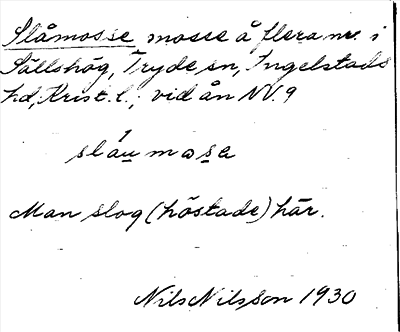 Slåmosse mosse å flera nr. i
Sällshög, Tryde sn, Ingelstads
hd, Krist. l.; vid ån NV. 9
slåu mosa
Man slog (höstade) här.
Nils Nilsson 1930